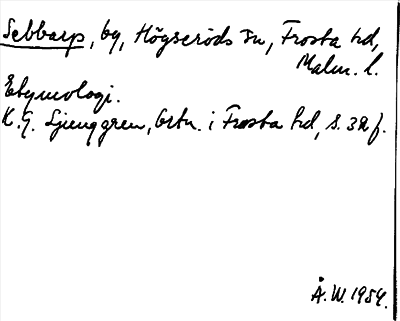 Sebbarp, by, Högseröds sn, Frosta hd,
Malm. l.
Etymologi.
K. G. Ljunggren, Ortn. i Frosta hd, s. 32 f.
Å. W. 1954.